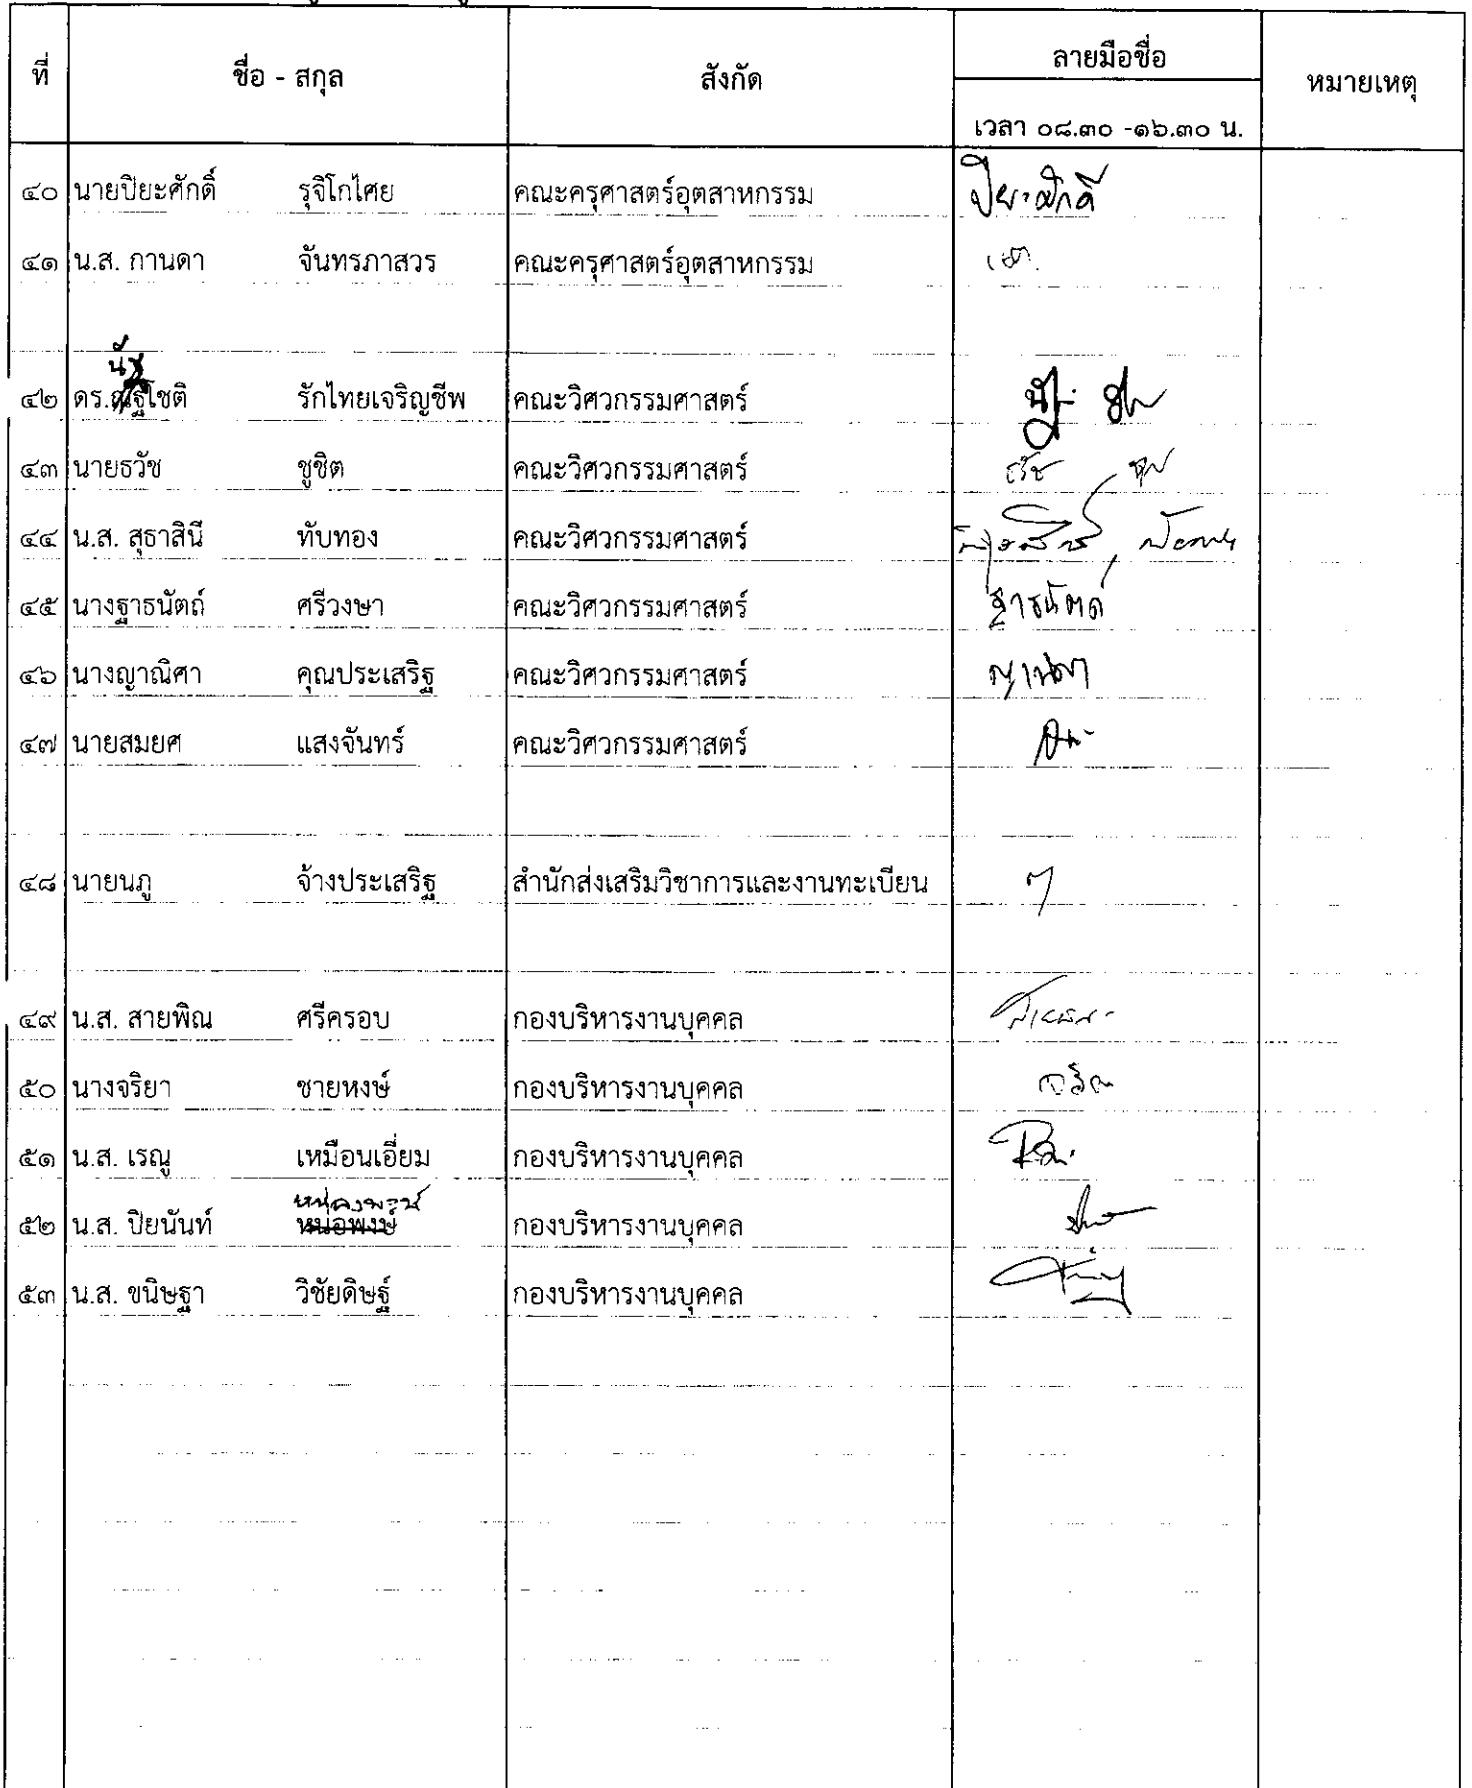 ที่ ชื่อ - สกุล สังกัด ลายมือชื่อ หมายเหตุ
เวลา ๐๘.๓๐ -๑๖.๓๐ น.
๔๐ นายปิยะศักดิ์ รุจิโกไศย คณะครุศาสตร์อุตสาหกรรม ปิยะศักดิ์
๔๑ น.ส. กานดา จันทรภาสวร คณะครุศาสตร์อุตสาหกรรม
นัฐ
๔๒ ดร.ณัฐโชติ รักไทยเจริญชีพ คณะวิศวกรรมศาสตร์
๔๓ นายธวัช ชูชิต คณะวิศวกรรมศาสตร์ ธวัช
๔๔ น.ส. สุธาสินี ทับทอง คณะวิศวกรรมศาสตร์
๔๕ นางฐาธนัตถ์ ศรีวงษา คณะวิศวกรรมศาสตร์ ฐาธนัตถ์
๔๖ นางญาณิศา คุณประเสริฐ คณะวิศวกรรมศาสตร์
๔๗ นายสมยศ แสงจันทร์ คณะวิศวกรรมศาสตร์
๔๘ นายนภู จ้างประเสริฐ สำนักส่งเสริมวิชาการและงานทะเบียน
๔๙ น.ส. สายพิณ ศรีครอบ กองบริหารงานบุคคล
๕๐ นางจริยา ชายหงษ์ กองบริหารงานบุคคล
๕๑ น.ส. เรณู เหมือนเอี่ยม กองบริหารงานบุคคล
๕๒ น.ส. ปิยนันท์ หน่อพงษ์ กองบริหารงานบุคคล
๕๓ น.ส. ขนิษฐา วิชัยดิษฐ์ กองบริหารงานบุคคล